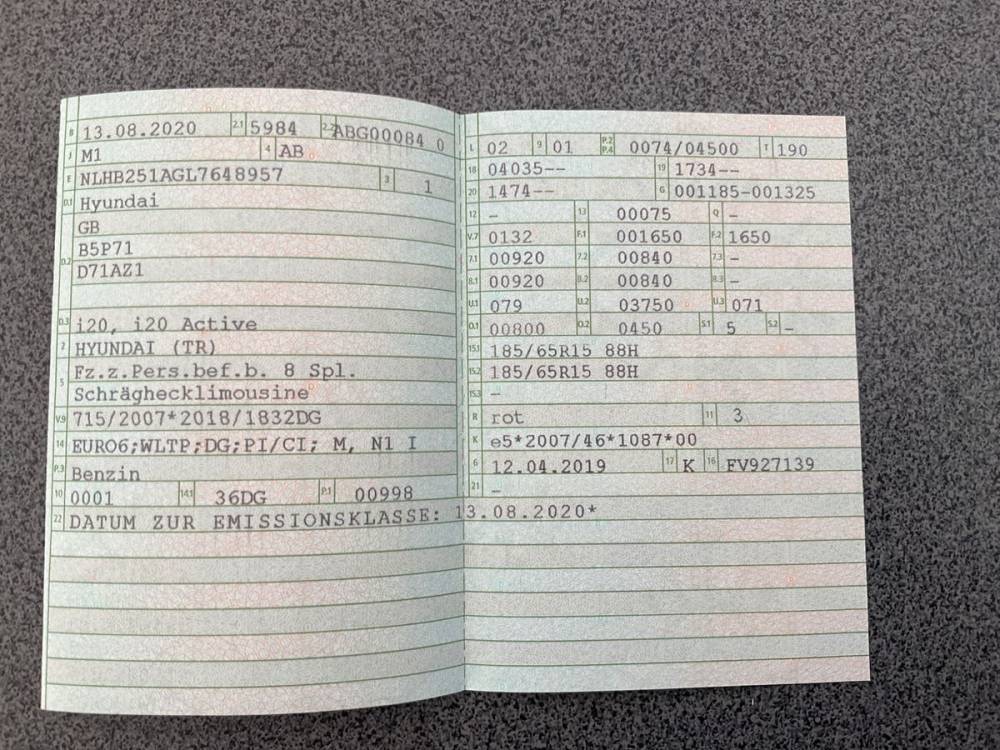 B 13.08.2020 2.1 5984 2.2 ABG00084 0
J M1 4 AB
E NLHB251AGL7648957 3 1
D.1 Hyundai
GB
D.2 B5P71
D71AZ1
D.3 i20, i20 Active
2 HYUNDAI (TR)
5 Fz.z.Pers.bef.b. 8 Spl.
Schräghecklimousine
V.9 715/2007*2018/1832DG
14 EURO6;WLTP;DG;PI/CI; M, N1 I
P.3 Benzin
10 0001 14.1 36DG P.1 00998
22 DATUM ZUR EMISSIONSKLASSE: 13.08.2020*
L 02 9 01 P.2 P.4 0074/04500 T 190
18 04035-- 19 1734--
20 1474-- G 001185-001325
12 - 13 00075 Q -
V.7 0132 F.1 001650 F.2 1650
7.1 00920 7.2 00840 7.3 -
8.1 00920 8.2 00840 8.3 -
U.1 079 U.2 03750 U.3 071
O.1 00800 O.2 0450 S.1 5 S.2 -
15.1 185/65R15 88H
15.2 185/65R15 88H
15.3 -
R rot 11 3
K e5*2007/46*1087*00
6 12.04.2019 17 K 16 FV927139
21 -